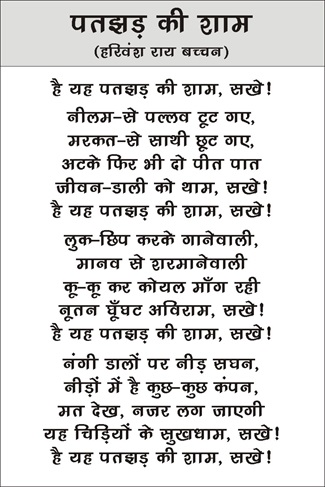 पतझड़ की शाम
(हरिवंश राय बच्चन)
है यह पतझड़ की शाम, सखे!
नीलम-से पल्लव टूट गए,
मरकत-से साथी छूट गए,
अटके फिर भी दो पीत पात
जीवन-डाली को थाम, सखे!
है यह पतझड़ की शाम, सखे!
लुक-छिप करके गानेवाली,
मानव से शरमानेवाली
कू-कू कर कोयल माँग रही
नूतन घूँघट अविराम, सखे!
है यह पतझड़ की शाम, सखे!
नंगी डालों पर नीड़ सघन,
नीड़ों में है कुछ-कुछ कंपन,
मत देख, नजर लग जाएगी
यह चिड़ियों के सुखधाम, सखे!
है यह पतझड़ की शाम, सखे!